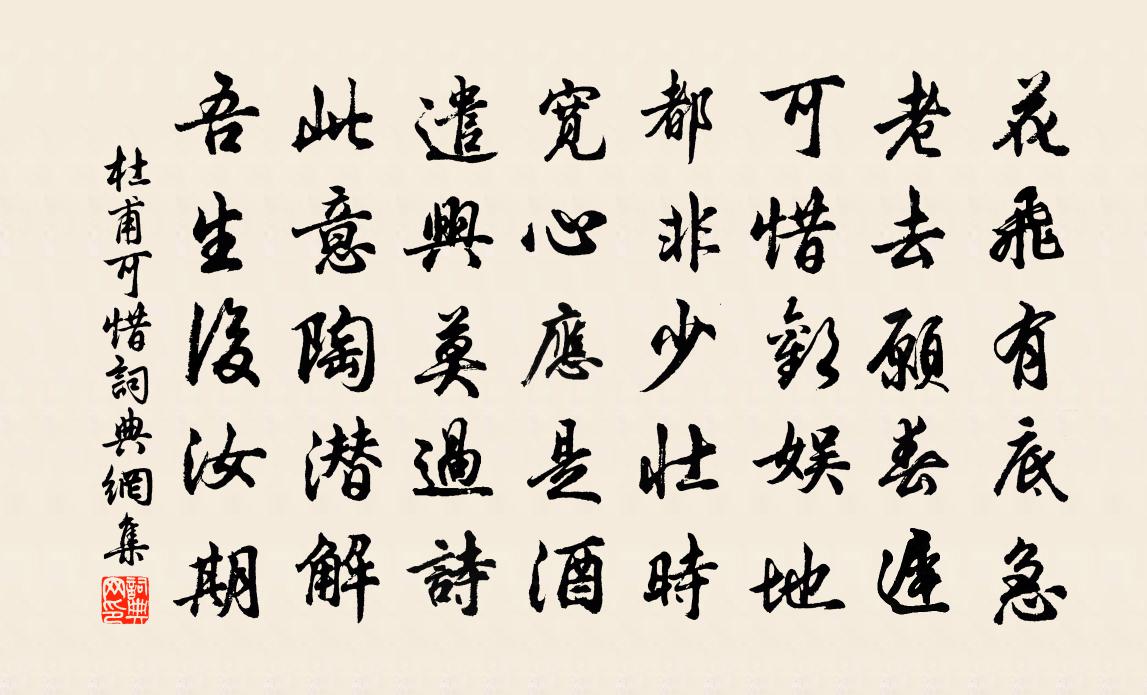 花飛有底急
老去願春遲
可惜歡娛地
都非少壯時
寬心應是酒
遣興莫過詩
此意陶潛解
吾生後汝期
杜甫可惜詞典網集
詞典
网印